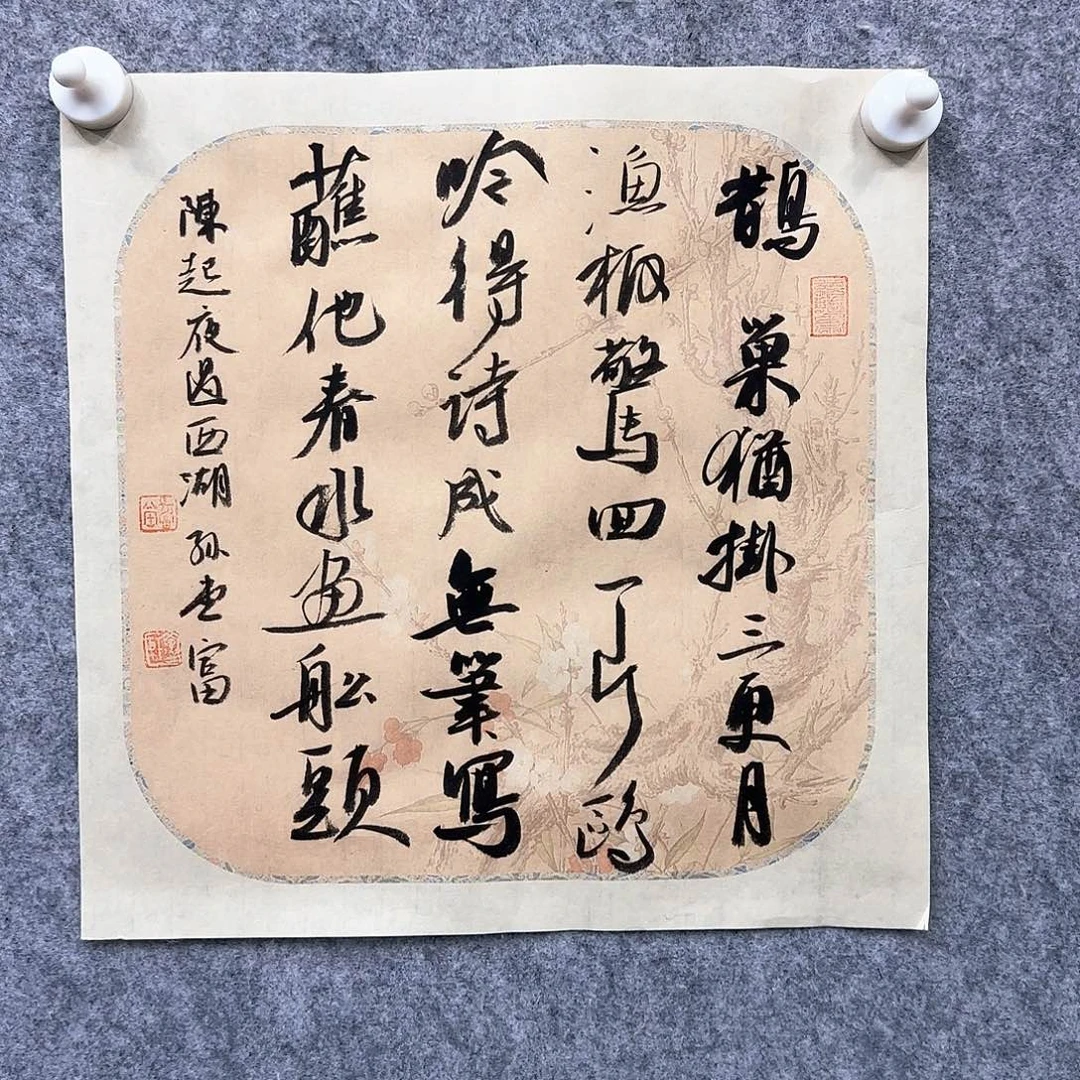 鵲巢猶掛三更月
漁板驚回一片鷗
吟得詩成無筆寫
蘸他春水畫舩頭
陳起夜過西湖 孫富